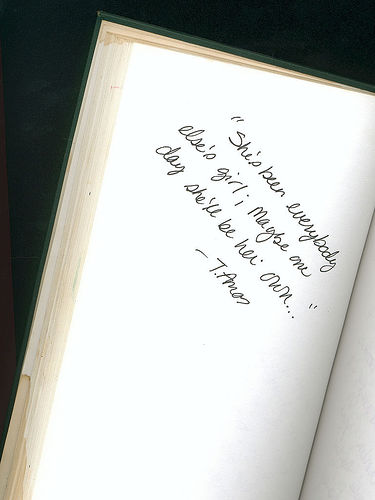 "She's been everybody
else's girl; maybe one
day she'll be her own..."
- T. Amos